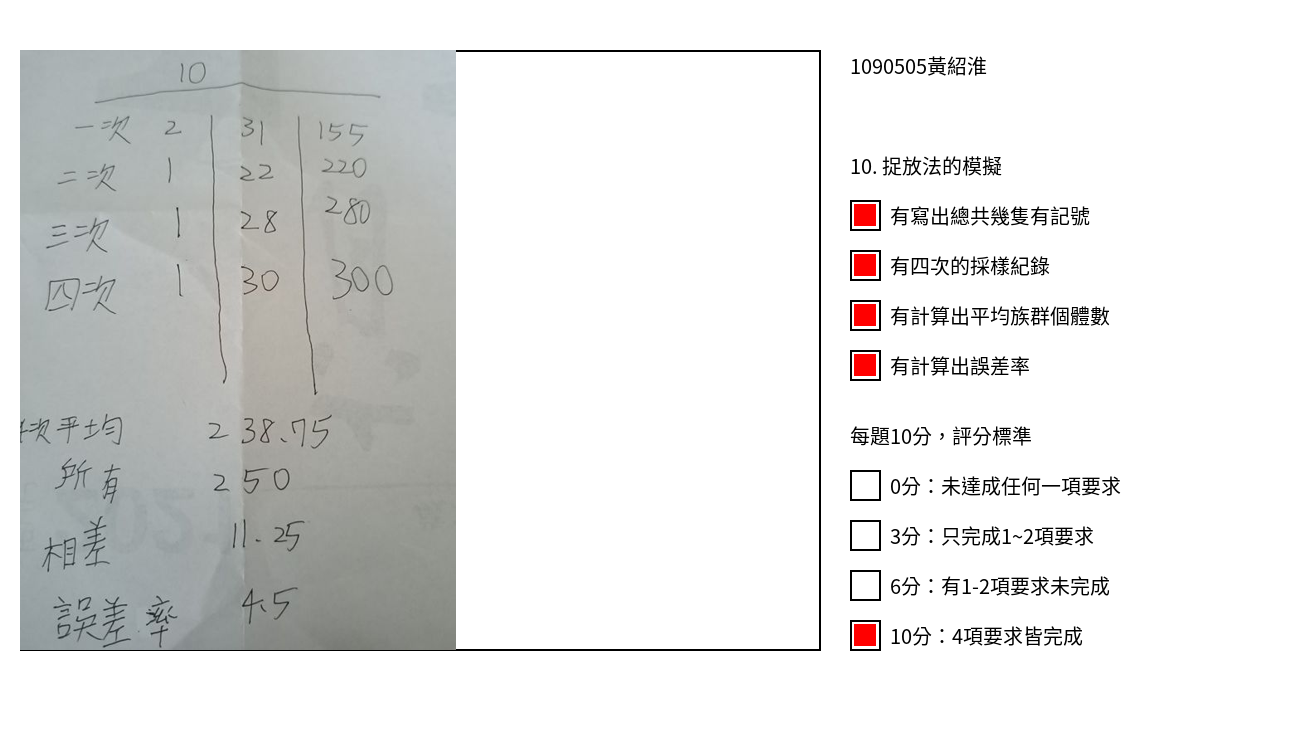 10
一次 2 31 155
二次 1 22 220
三次 1 28 280
四次 1 30 300
次平均 238.75
所有 250
相差 11.25
誤差率 4.5
1090505黃紹淮
10. 捉放法的模擬
有寫出總共幾隻有記號
有四次的採樣紀錄
有計算出平均族群個體數
有計算出誤差率
每題10分，評分標準
0分：未達成任何一項要求
3分：只完成1~2項要求
6分：有1-2項要求未完成
10分：4項要求皆完成